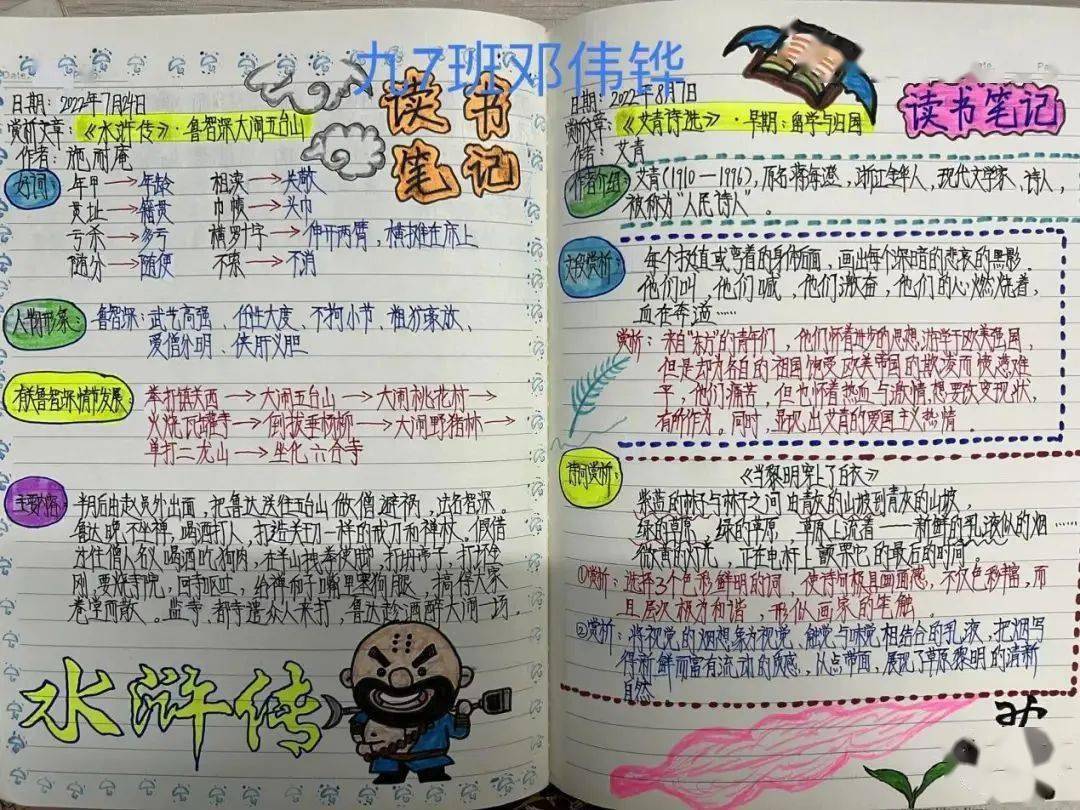 九7班邓伟铧
日期：2022年7月24日
赏析文章：《水浒传》·鲁智深大闹五台山
作者：施耐庵
读书
笔记
好词
年甲→年龄 相渎→失敬
贯址→籍贯 巾帻→头巾
亏杀→多亏 横罗十字→伸开两臂，横摊在床上
随分→随便 不索→不消
人物形象：
鲁智深：武艺高强、任性大度、不拘小节、粗犷豪放、
爱僧分明、侠肝义胆
有关鲁智深情节发展：
拳打镇关西→大闹五台山→大闹桃花村→
火烧瓦罐寺→倒拔垂杨柳→大闹野猪林→
单打二龙山→坐化六合寺
主要内容：
半月后由赵员外出面，把鲁达送往五台山做僧避祸，法名智深。
鲁达晚不坐禅，喝酒打人，打造关刀一样的戒刀和禅杖。假借
过往僧人名义喝酒吃狗肉，在半山拽拳使脚，打坍亭子，打坏金
刚，要烧寺院，回寺呕吐，给禅和子嘴里塞狗腿，搞得大家
卷堂而散。监寺、都寺遣众人来打，鲁达趁酒醉大闹一场。
水浒传
日期：2022年8月7日
赏析文章：《艾青诗选》·早期：留学与归国
作者：艾青
读书笔记
作者介绍：
艾青(1910—1996)，原名蒋海澄，浙江金华人，现代文学家、诗人，
被称为“人民诗人”。
文段赏析：
每个挺值或弯着的身体后面，画出每个深暗的悲哀的黑影。
他们叫，他们喊，他们激奋，他们的心燃烧着，
血在奔逆……
赏析：来自“东方”的青年们，他们怀着进步的思想，游学于欧美强国，
但是却为各自的祖国饱受欧美帝国的欺凌而愤懑难
平，他们痛苦，但也怀着热血与激情，想要改变现状，
有所作为。同时，显现出艾青的爱国主义热情。
诗词赏析：
《当黎明穿上了白衣》
紫蓝的林子与林子之间由青灰的山坡到青灰的山坡，
绿的草原，绿的草原，草原上流着——新鲜的乳液似的烟……
微黄的灯光，正在电杆上颤栗它的最后的时间。
①赏析：选择3个色彩鲜明的词，使诗句极具画面感，不仅色彩丰富，而
且层次极为和谐，形似画家的生触。
②赏析：将视觉的烟想象为视觉、触觉与味觉相结合的乳液，把烟写
得新鲜而富有流动的质感，以点带面，展现了草原黎明的清新
自然